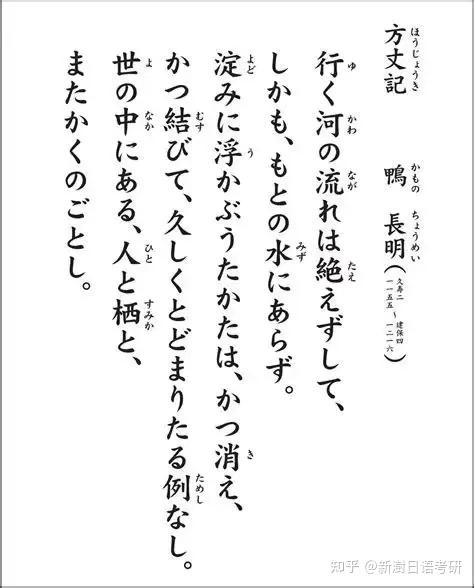 ほうじょうき かもの ちょうめい
方丈記 鴨 長明(久寿二 一一五五〜建保四 一二一六)
ゆ かわ なが たえ
行く河の流れは絶えずして、
みず
しかも、もとの水にあらず。
よど う き
淀みに浮かぶうたかたは、かつ消え、
むす ためし
かつ結びて、久しくとどまりたる例なし。
よ なか ひと すみか
世の中にある、人と栖と、
またかくのごとし。
知乎 @新澍日语考研